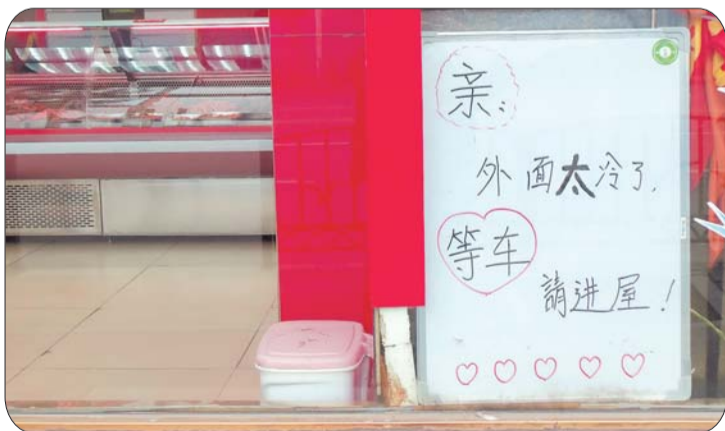 亲:
外面太冷了.
等车
請进屋!